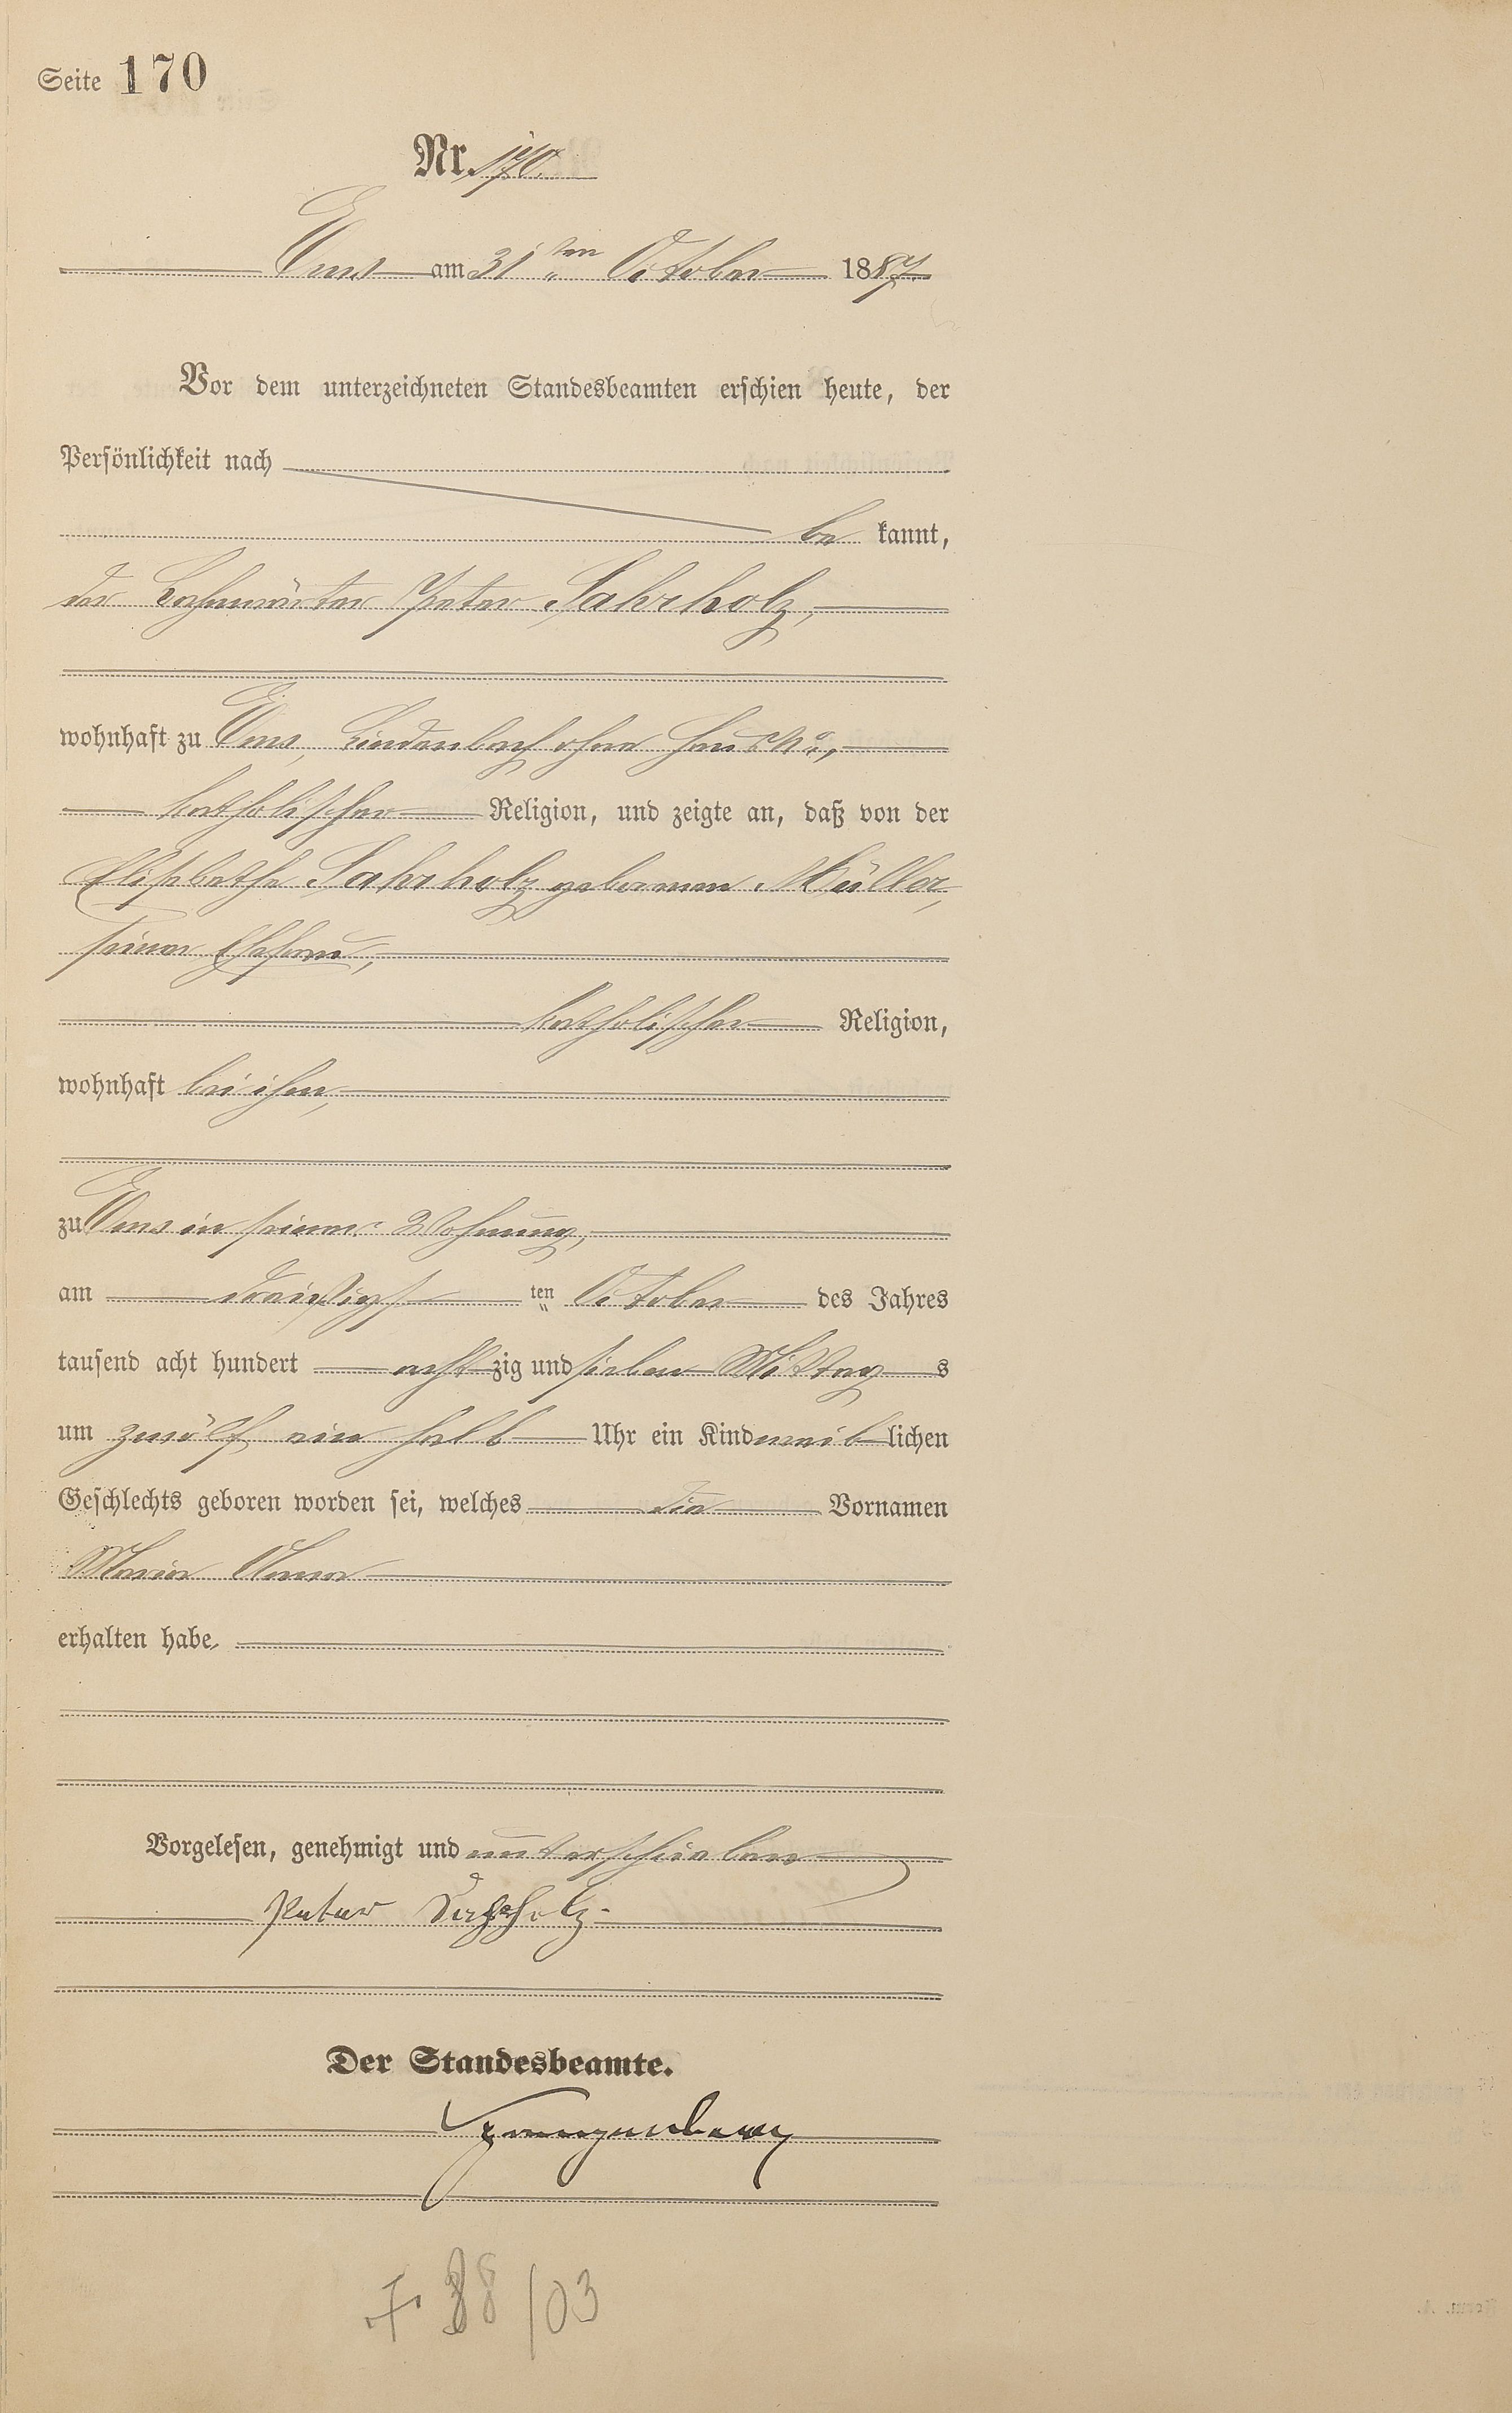 Seite 170
Nr. 170.
Ems am 31ten October 1887.
Vor dem unterzeichneten Standesbeamten erschien heute, der
Persönlichkeit nach
be kannt,
der Bahnwärter Peter Sahrholz,
wohnhaft zu Ems, Lindenbach ohne Haus No.,
katholischer Religion, und zeigte an, daß von der
Elisabethe Sahrholz geborenen Müller,
seiner Ehefrau,
katholischer Religion,
wohnhaft bei ihm,
zu Ems in seiner Wohnung,
am dreißigst ten October des Jahres
tausend acht hundert acht zig und sieben Mittag s
um zwölf ein halb Uhr ein Kind weib lichen
Geschlechts geboren worden sei, welches die Vornamen
Maria Anna
erhalten habe.
Vorgelesen, genehmigt und unterschrieben
Peter Sahrholz.
Der Standesbeamte.
88/03